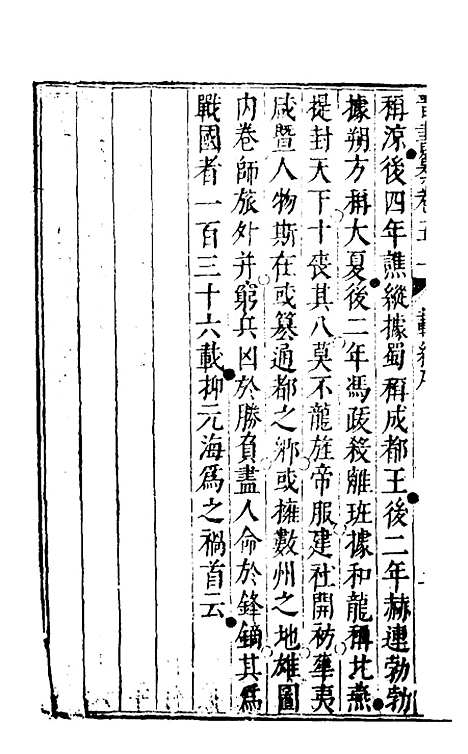 晉書纂卷五十 載紀序
稱涼後四年譙縱據蜀稱成都王後二年赫連勃勃
據朔方稱大夏後二年馮跋殺離班據和龍稱北燕
提封天下十喪其八莫不龍旌帝服建社開祊華夷
咸暨人物斯在或篡通都之鄉或擁數州之地雄圖
內卷師旅外并窮兵凶於勝負盡人命於鋒鏑其爲
戰國者一百三十六載抑元海爲之禍首云